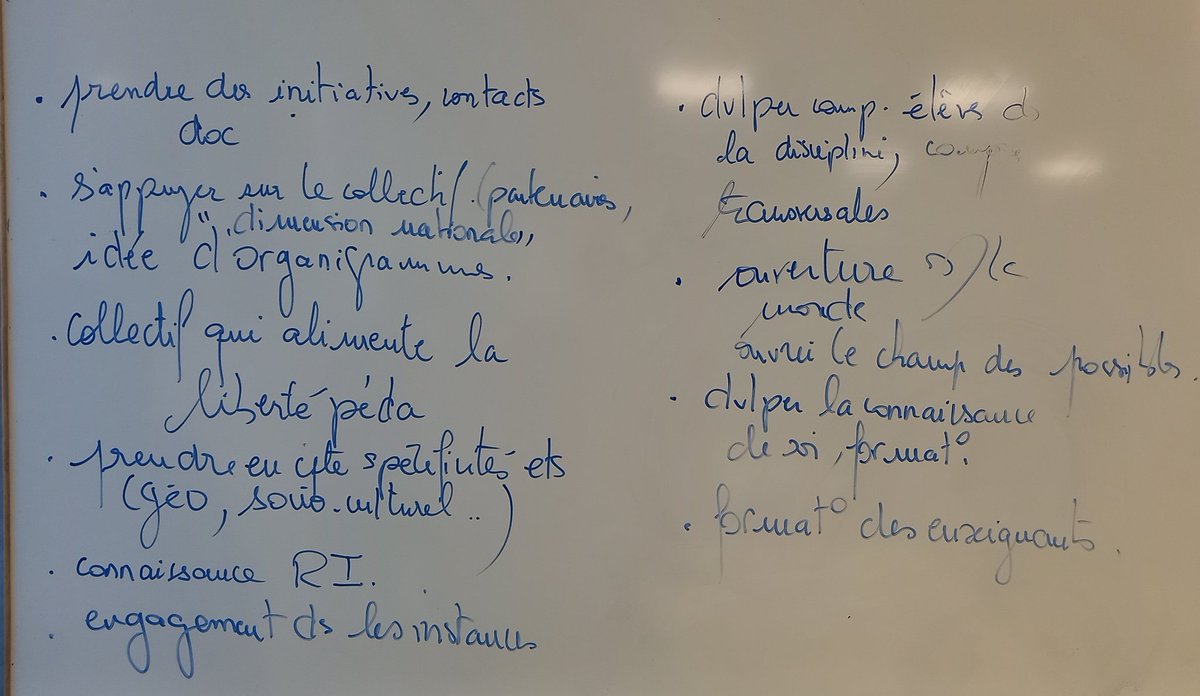 . prendre des initiatives, contacts
doc
. s'appuyer sur le collectif (partenaires,
", dimension nationale,
idée d'organigrammes.
. collectif qui alimente la
liberté péda
. prendre en cpte spécificités ets
(géo, socio-culturel ..)
. connaissance RI.
. engagement ds les instances
. dvlper comp. élève ds
la discipline, comp
transversales
. ouverture s/ le
monde
ouvrir le champ des possibles.
. dvlper la connaissance
de soi, format°.
. format° des enseignants.